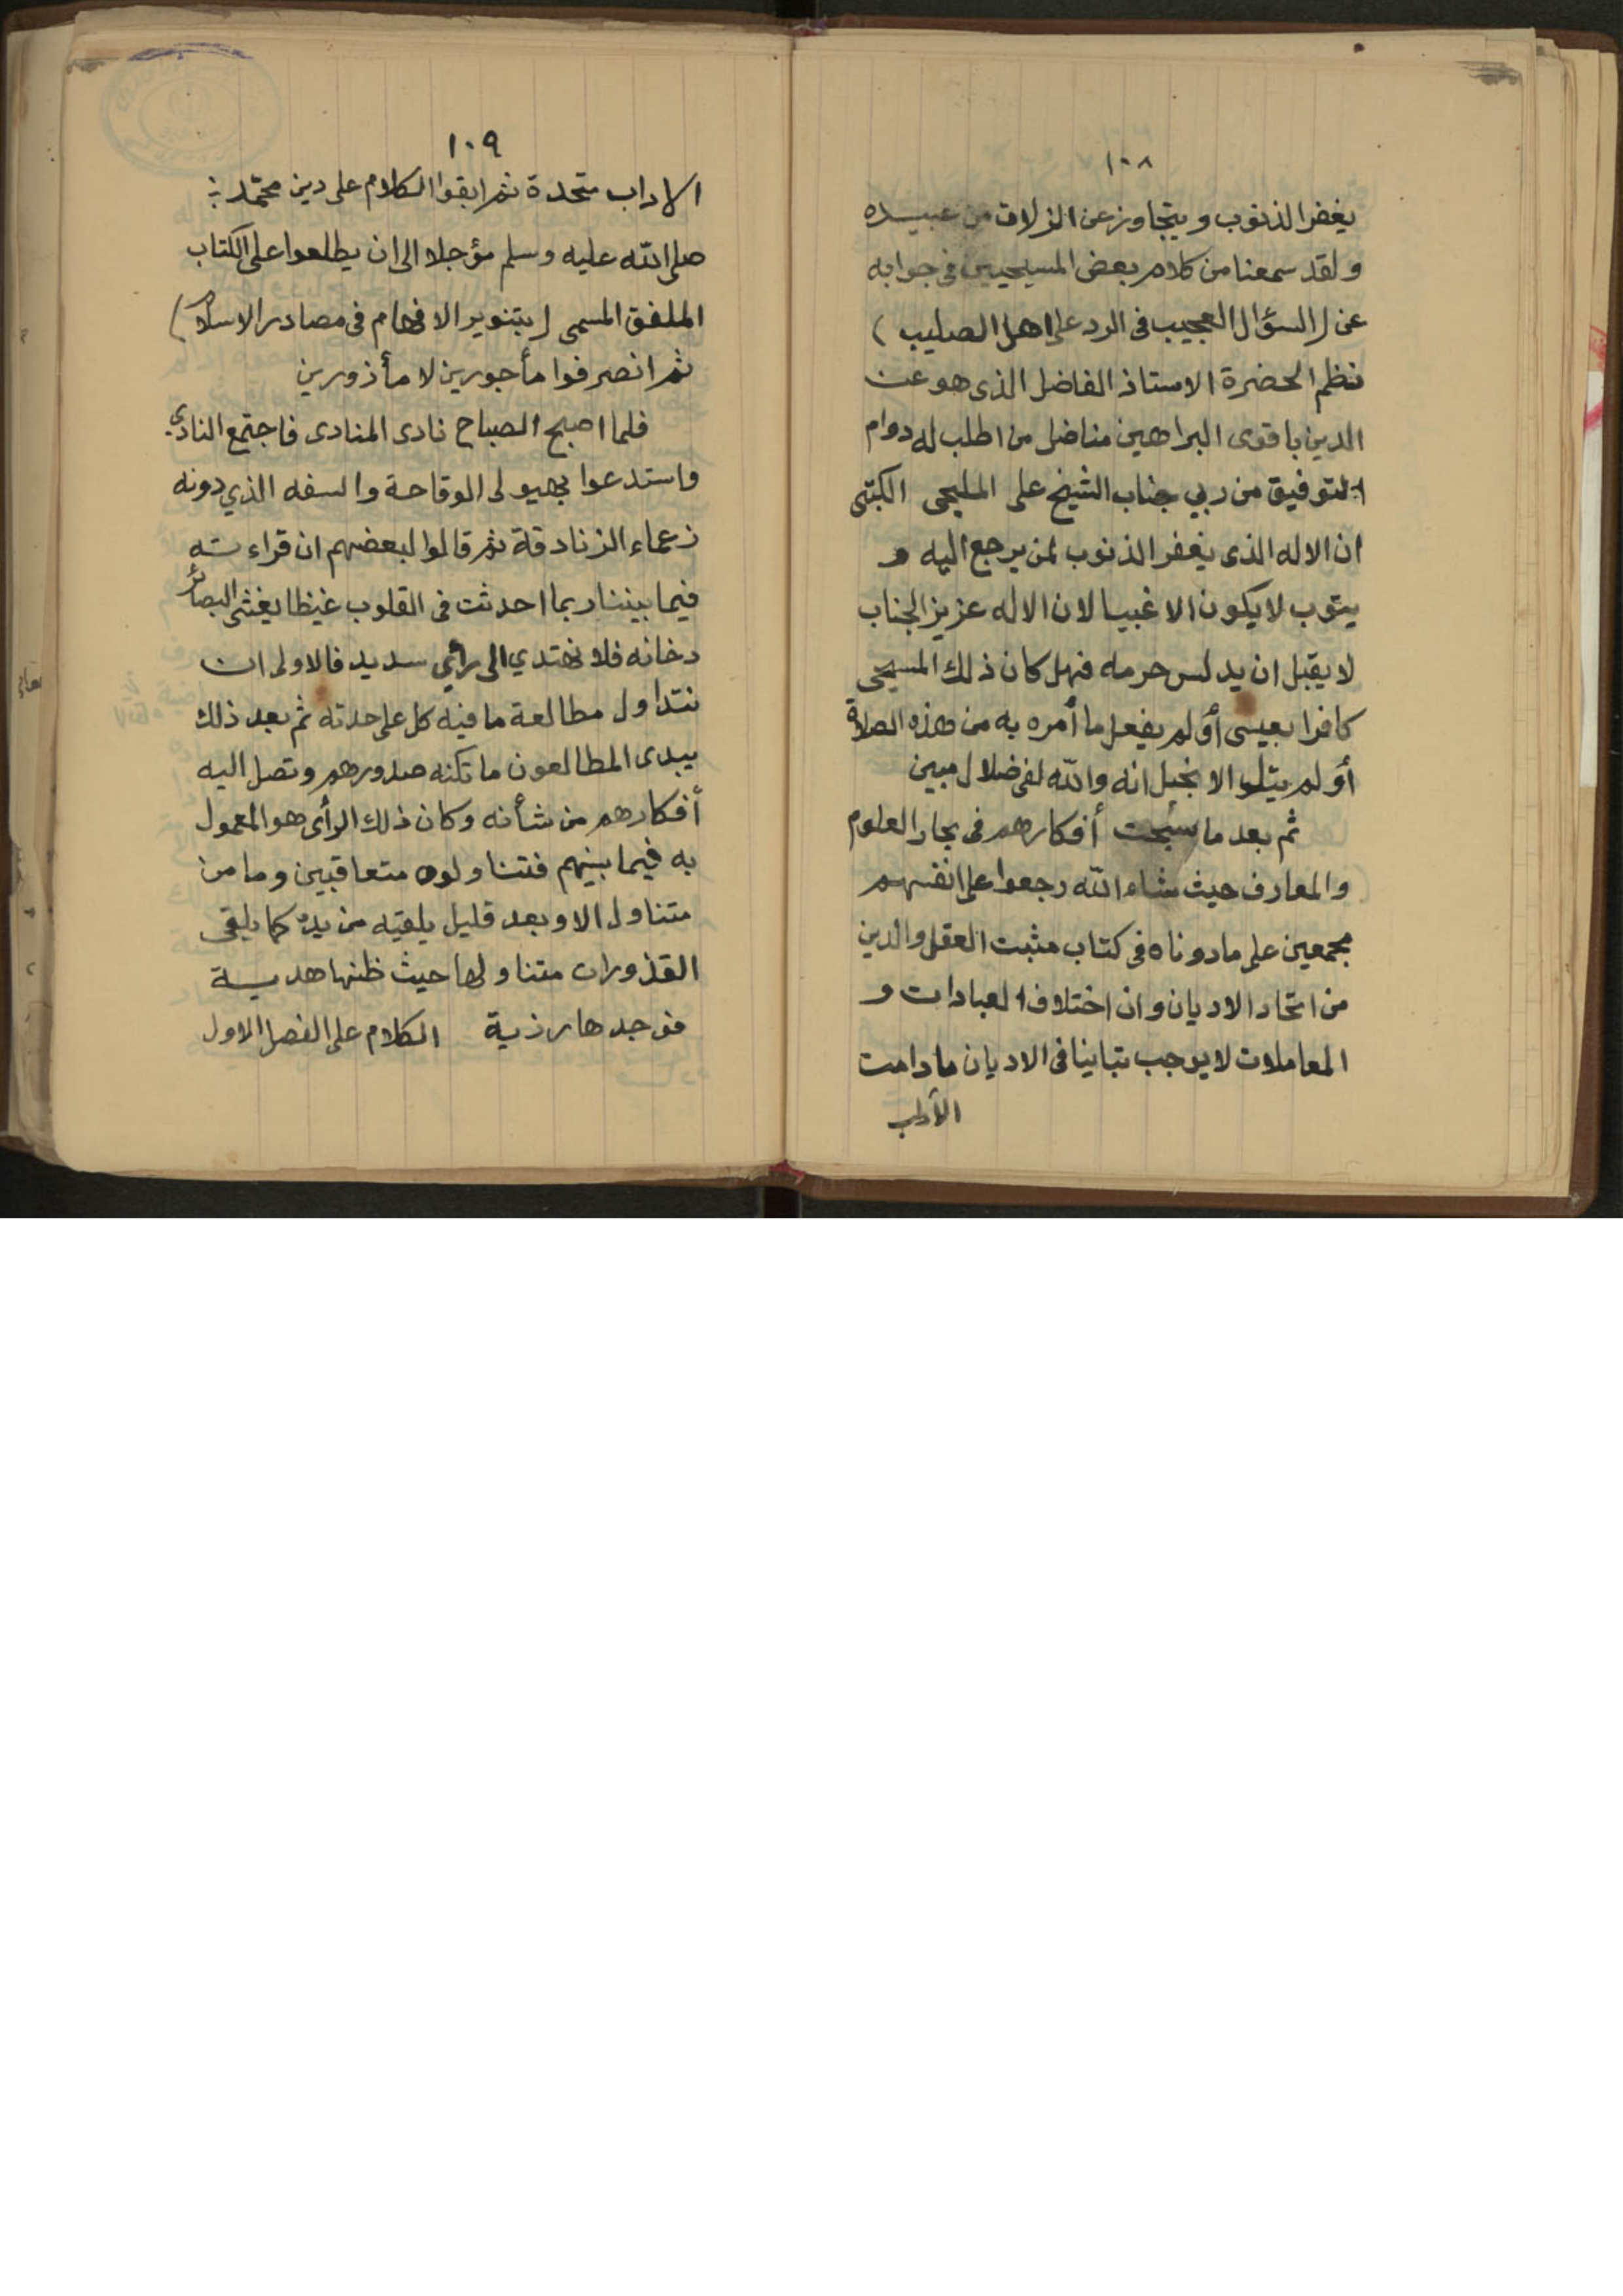 ١٠٨
يغفر الذنوب ويتجاوز عن الزلات من عبيده
ولقد سمعنا من كلام بعض المسيحيين في جوابه
عن (السؤال العجيب في الرد على اهل الصليب)
نظم الحضرة الاستاذ الفاضل الذى هو عن
الدين باقوى البراهين مناضل من اطلب له دوام
التوفيق من ربي جناب الشيخ على المليجى الكتبى
ان الاله الذى يغفر الذنوب لمن يرجع اليه و
يتوب لا يكون الا غبيا لان الاله عزيز الجناب
لا يقبل ان يدلس حرمه فهل كان ذلك المسيحى
كافرا بعيسى أو لم يفعل ما أمره به من هذه الصلاة
أو لم يتلو الانجيل انه والله لفى ضلال مبين
ثم بعد ما سبحت أفكارهم فى بحار العلوم
والمعارف حيث شاء الله رجعوا على انفسهم
مجمعين على ما دوناه فى كتاب مثبت العقل والدين
من اتحاد الاديان وان اختلاف العبادات و
المعاملات لا يوجب تباينا فى الاديان ما دامت
الآداب
١٠٩
الاداب متحدة ثم ابقوا الكلام على دين محمد
صلى الله عليه وسلم مؤجلا الى ان يطلعوا على الكتاب
الملفق المسمى (بتنوير الافهام فى مصادر الاسلام)
ثم انصرفوا مأجورين لا مأذورين
فلما اصبح الصباح نادى المنادى فاجتمع النادي
واستدعوا بهيولى الوقاحة والسفه الذي دونه
زعماء الزنادقة ثم قالوا لبعضهم ان قراءته
فيما بيننا ربما احدثت فى القلوب غيظا يغشى البصائر
دخانه فلا نهتدي الى رأي سديد فالاولى ان
نتداول مطالعة ما فيه كل على حدته ثم بعد ذلك
يبدى المطالعون ما تكنه صدورهم وتصل اليه
أفكارهم من شأنه وكان ذلك الرأى هو المعمول
به فيما بينهم فتناولوه متعاقبين وما من
متناول الا وبعد قليل يلقيه من يده كما يلقى
القذوران متناولها حيث ظنها هدية
فوجدها رذية الكلام على الفصل الاول